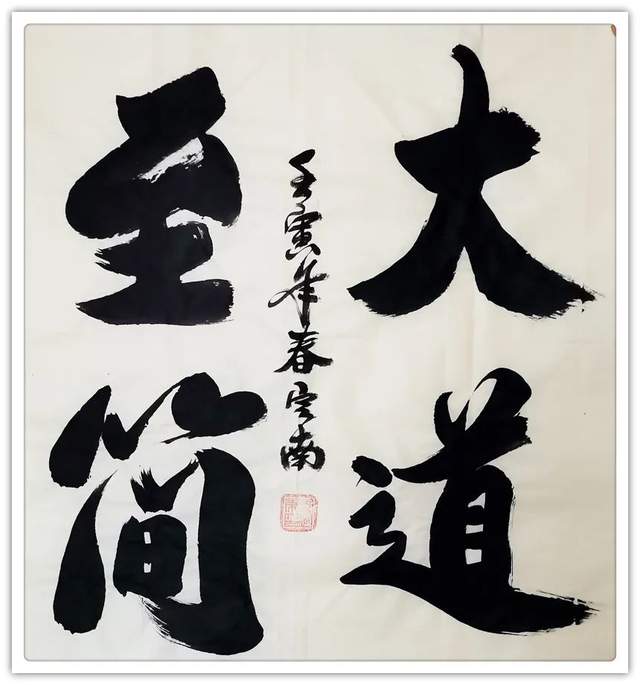 大道
至简
壬寅年春宝南